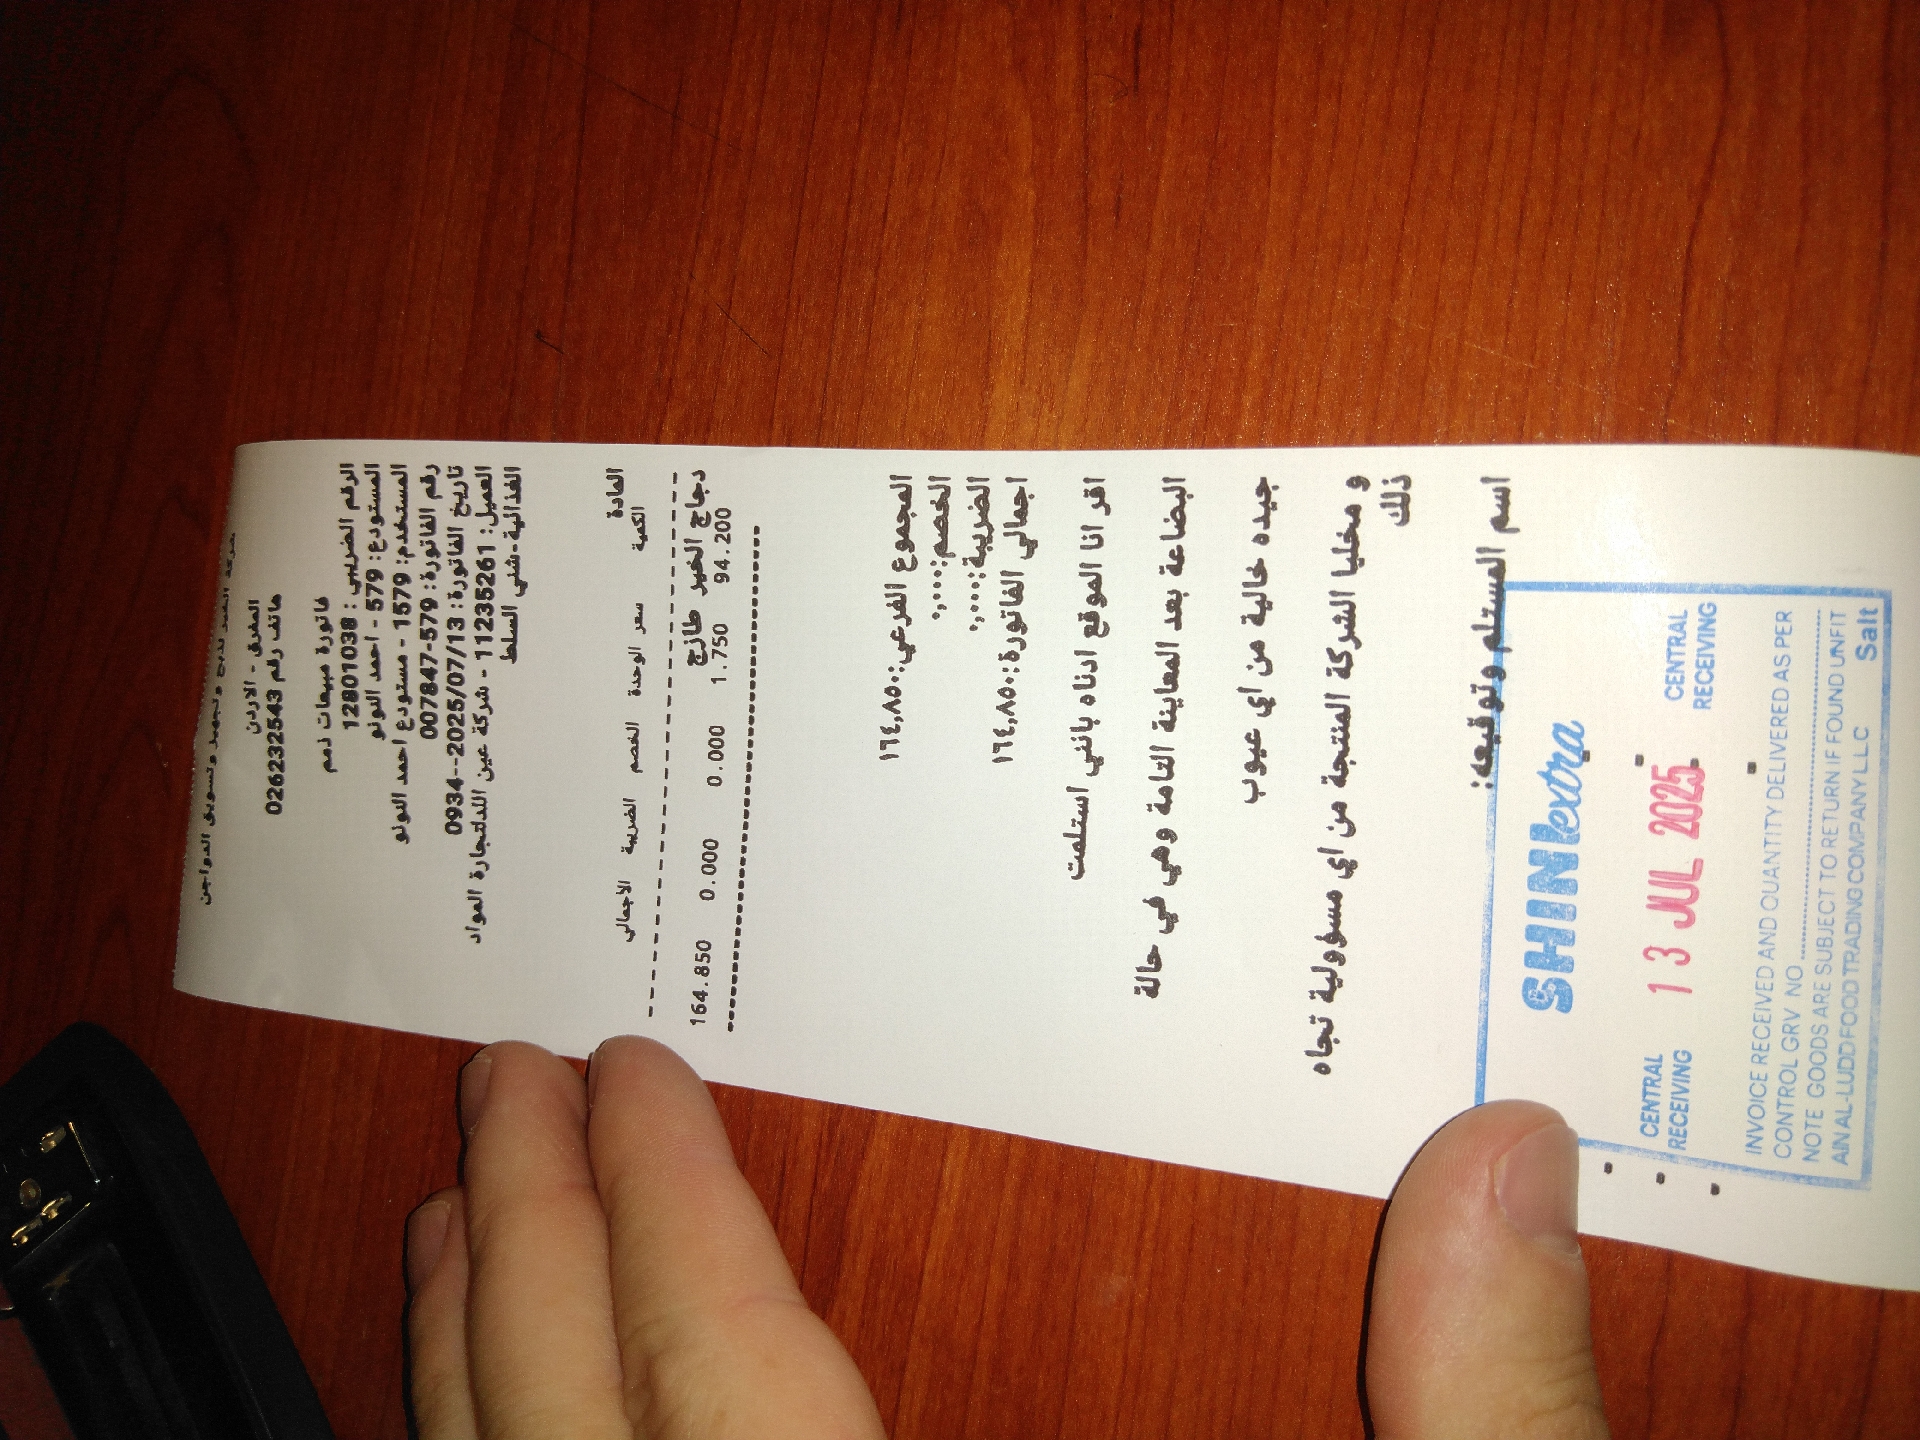 شركة الخير لذبح وتجهيز وتسويق الدواجن
المفرق - الاردن
هاتف رقم 026232543
فاتورة مبيعات ذمم
الرقم الضريبي : 12801038
المستودع: 579 - احمد النونو
المستخدم: 1579 - مستودع احمد النونو
رقم الفاتورة: 579-007847
تاريخ الفاتورة: 2025/07/13--0934
العميل: 1123S261 - شركة عين اللدلتجارة المواد
الغذائية-شني السلط
المادة
الكمية سعر الوحدة الخصم الضريبة الأجمالي
دجاج الخير طازج
94.200 1.750 0.000 0.000 164.850
المجموع الفرعي:١٦٤,٨٥٠
الخصم:٠,٠٠٠
الضريبة:٠,٠٠٠
اجمالي الفاتورة:١٦٤,٨٥٠
اقر انا الموقع ادناه بانني استلمت
البضاعة بعد المعاينة التامة وهي في حالة
جيده خالية من اي عيوب
و مخليا الشركة المنتجة من اي مسؤولية تجاه
ذلك
اسم المستلم وتوقيعه:
SHINI extra
CENTRAL RECEIVING
13 JUL 2025
CENTRAL RECEIVING
INVOICE RECEIVED AND QUANTITY DELIVERED AS PER
CONTROL GRV NO
NOTE GOODS ARE SUBJECT TO RETURN IF FOUND UNFIT
AIN AL-LUDD FOOD TRADING COMPANY LLC Salt